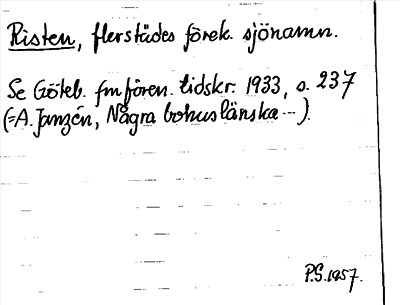 Risten, flerstädes förek. sjönamn.
Se Göteb. fmfören. tidskr. 1933, s. 237
(=A. Janzén, Några bohuslänska ---).
P.S. 1957.